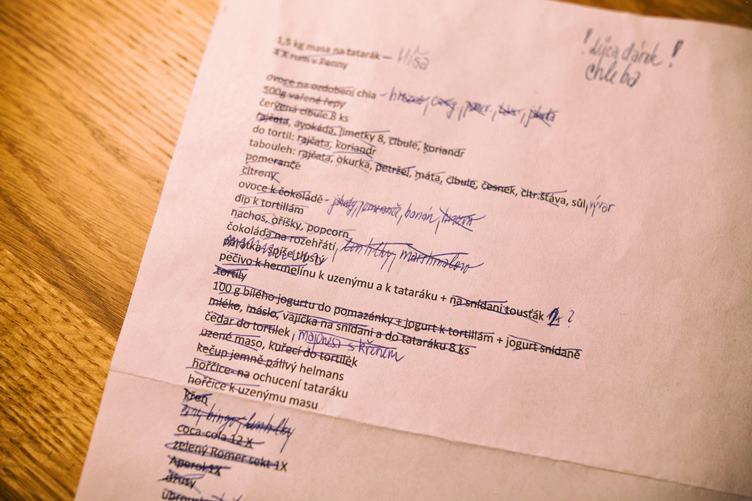 1,5 kg masa na tatarák – Míša
! Lýca dárek !
chleba
ovoce na ozdobení chia –
500g vařené řepy
červená cibule 8 ks
rajčata, avokáda, limetky 8, cibule, koriandr
do tortil: rajčata, koriandr
tabouleh: rajčata, okurka, petržel, máta, cibule, česnek, citr.šťáva, sůl,
pomeranče
citrony
ovoce k čokoládě - jahody, pomeranče, banán,
dip k tortillám
nachos, oříšky, popcorn
čokoláda na rozehřátí, lentilky marshmalow
párátka spíše tlustý
pečivo k hermelínu k uzenýmu a k tataráku + na snídani tousťák 2x ?
tortily
100 g bílého jogurtu do pomazánky + jogurt k tortillám + jogurt snídaně
mléko, máslo, vajíčka na snídani a do tataráku 8 ks
čedar do tortilek, majonéza s křenem
uzené maso, kuřecí do tortilek
kečup jemně pálivý helmans
hořčice na ochucení tataráku
hořčice k uzenýmu masu
křen
bingo, lentilky
coca cola 12 X
zelený Romer sekt 1X
Aperol 1X
džusy